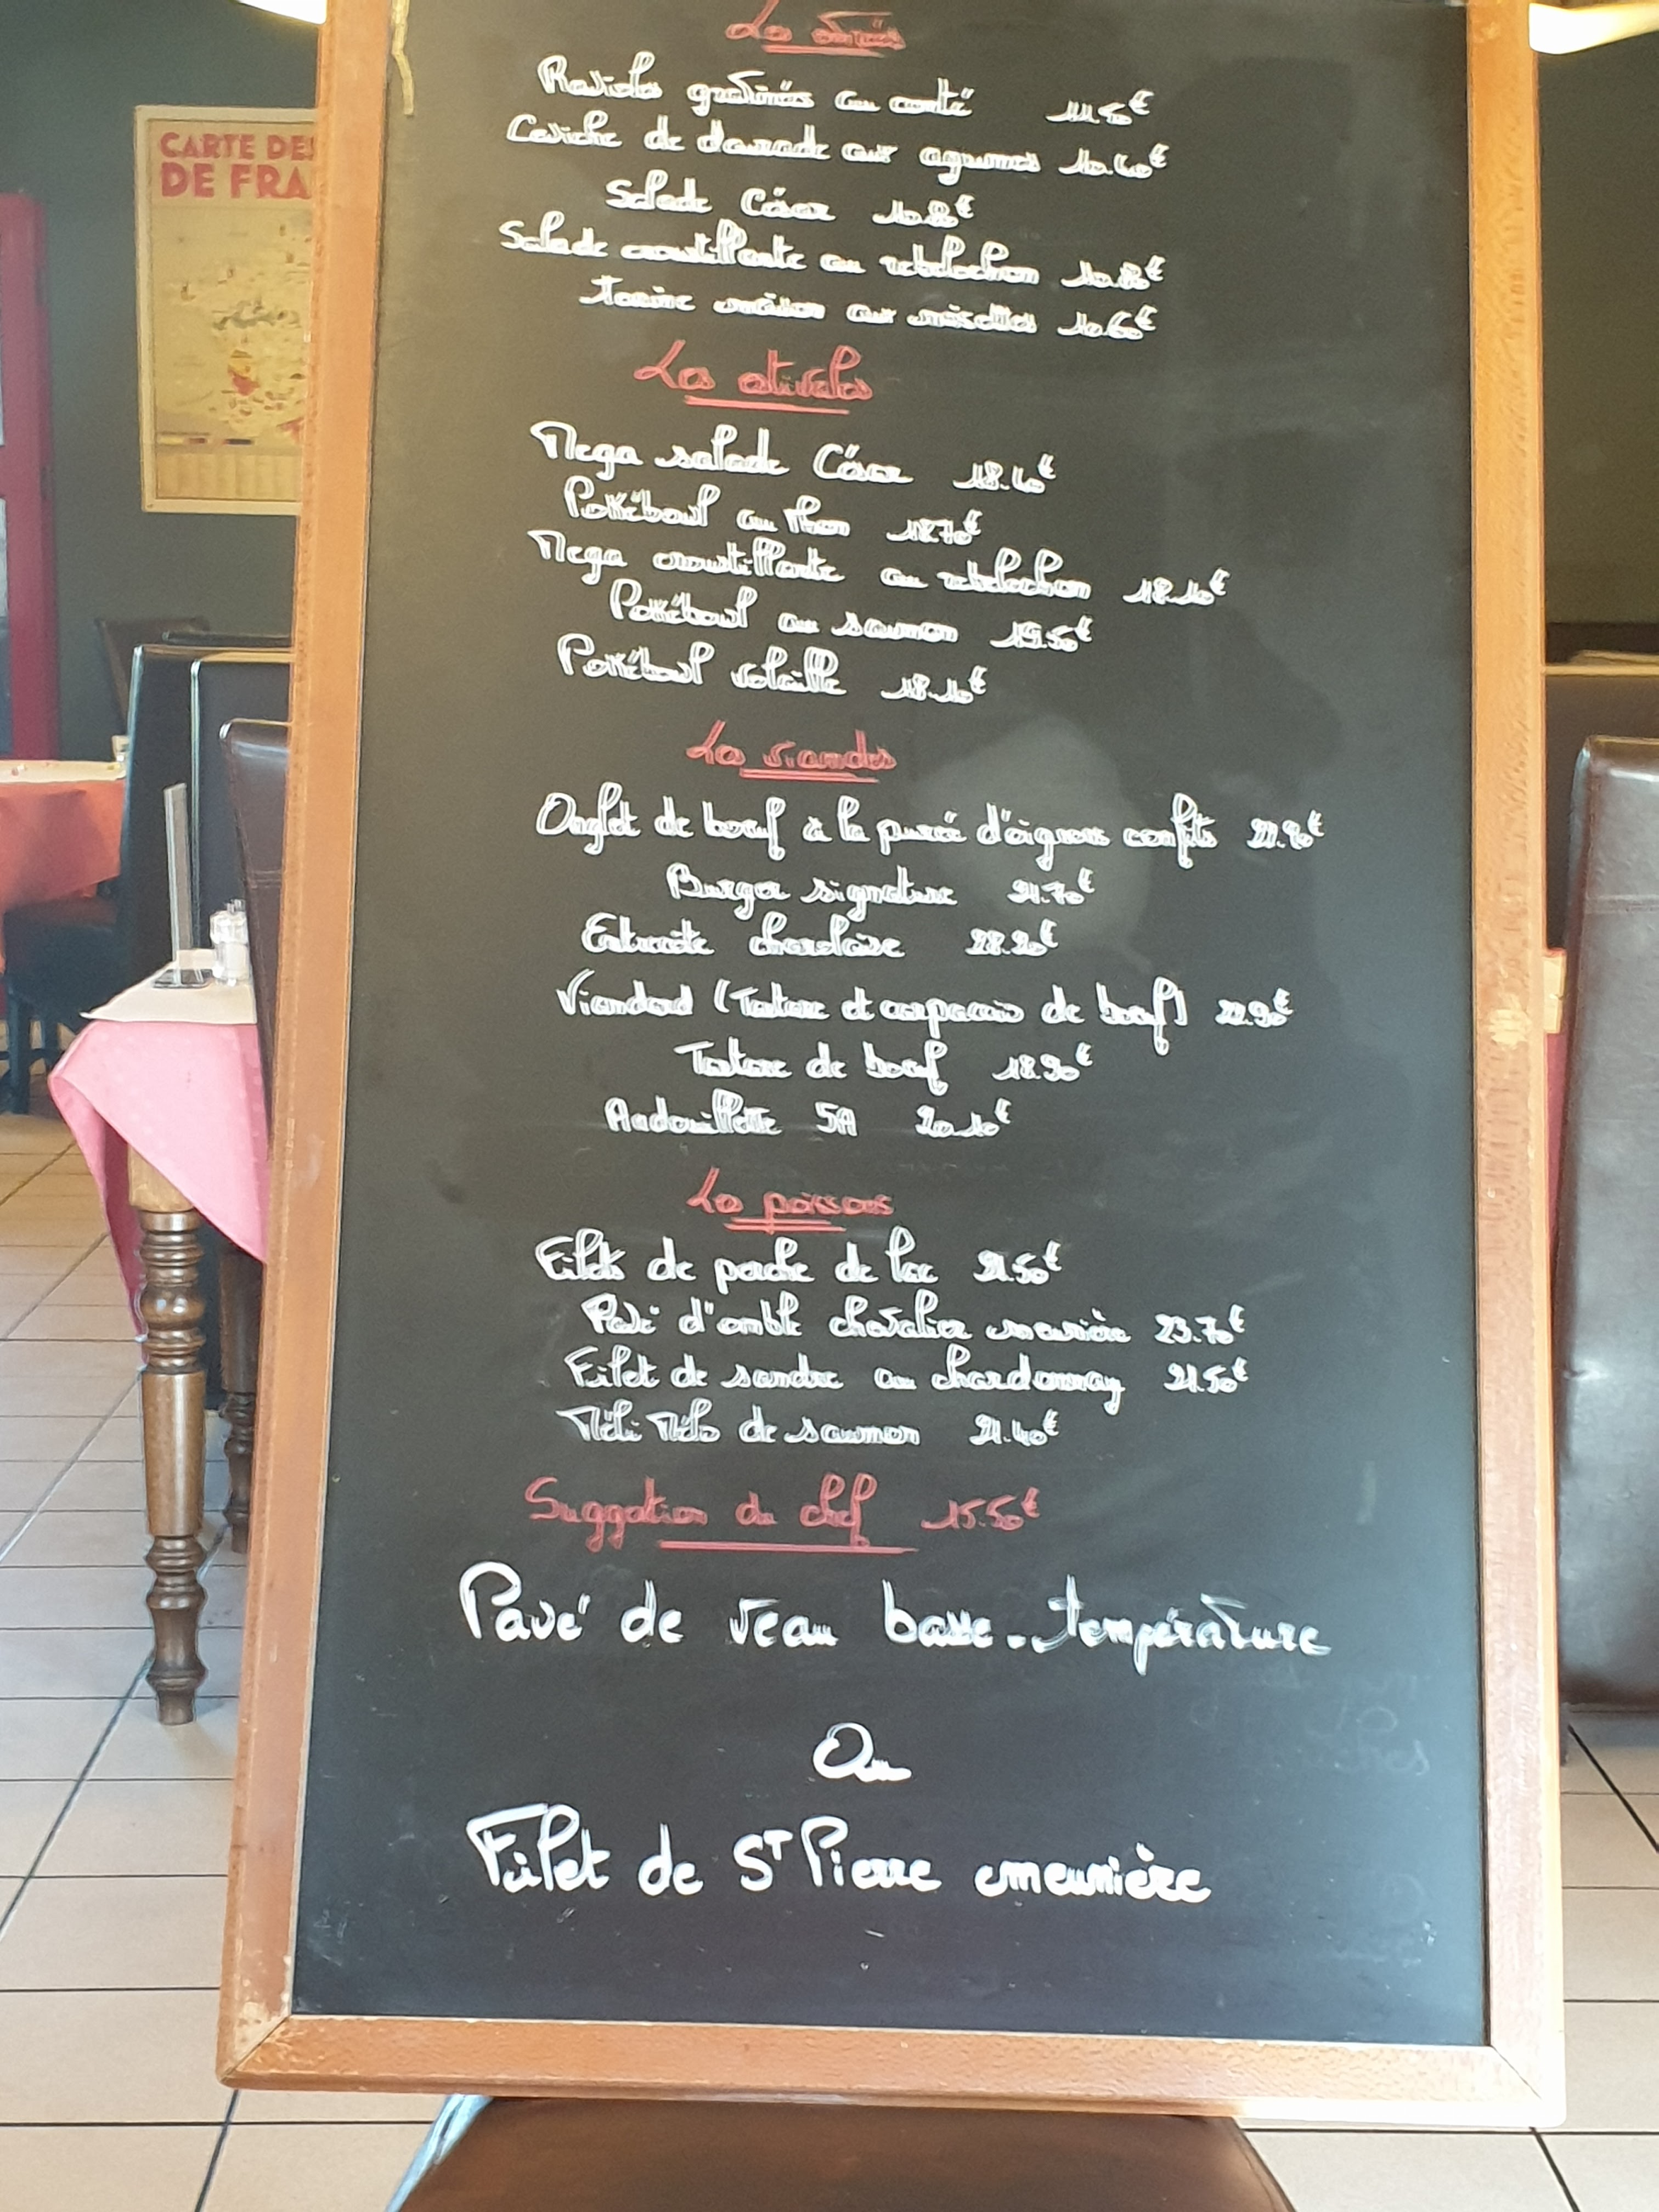 CARTE DES
DE FRA
Les
Ravioles gratinées au comté 11.50€
Ceviche de daurade aux agrumes 10.40€
Salade César 10.20€
Salade croustillante au reblochon 10.80€
Terrine maison aux noisettes 10.60€
Les estivales
Mega salade César 18.40€
Pokébowl au thon 18.70€
Mega croustillante au reblochon 18.10€
Pokébowl au saumon 19.50€
Pokébowl volaille 18.10€
Les viandes
Onglet de boeuf à la purée d'oignons confits
Burger signature 21.70€
Entrecôte charolaise 28.20€
Viandard (Tartare et carpaccio de boeuf) 22.90€
Tartare de boeuf 18.90€
Andouillette 5A 20.10€
Les poissons
Filets de perche de lac 21.50€
Pavé d'omble chevalier meunière 23.70€
Filet de sandre au chardonnay 21.50€
Méli Mélo de saumon 21.40€
Suggestion du chef 15.50€
Pavé de veau basse-température
Ou
Filet de ST Pierre meunière